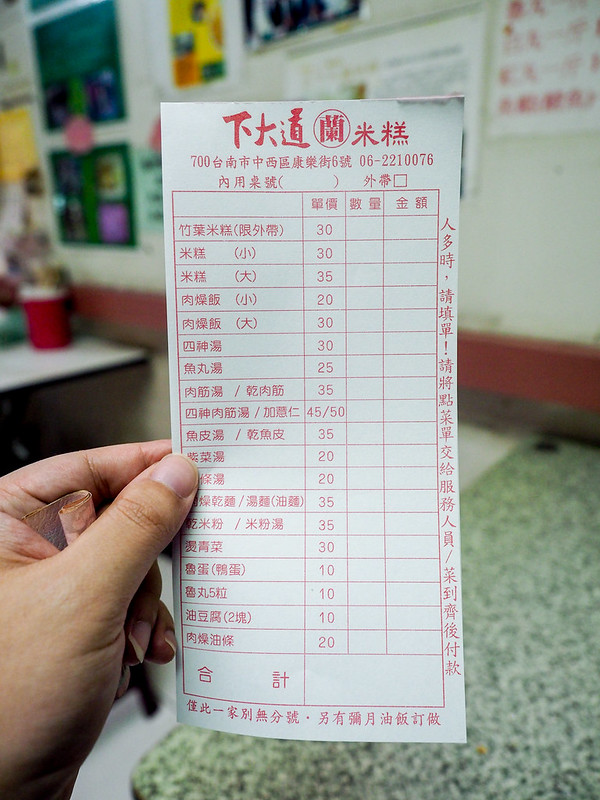 下大道 蘭 米糕
700台南市中西區康樂街6號 06-2210076
內用桌號( ) 外帶□
單價 數量 金額
竹葉米糕(限外帶) 30
米糕 (小) 30
米糕 (大) 35
肉燥飯 (小) 20
肉燥飯 (大) 30
四神湯 30
魚丸湯 25
肉筋湯 / 乾肉筋 35
四神肉筋湯 / 加薏仁 45/50
魚皮湯 / 乾魚皮 35
紫菜湯 20
條湯 20
燥乾麵 / 湯麵(油麵) 35
乾米粉 / 米粉湯 35
燙青菜 30
魯蛋(鴨蛋) 10
魯丸5粒 10
油豆腐(2塊) 10
肉燥油條 20
合計
僅此一家別無分號，另有彌月油飯訂做
人多時，請填單！請將點菜單交給服務人員/菜到齊後付款